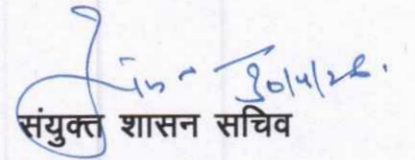 30/4/26.
संयुक्त शासन सचिव